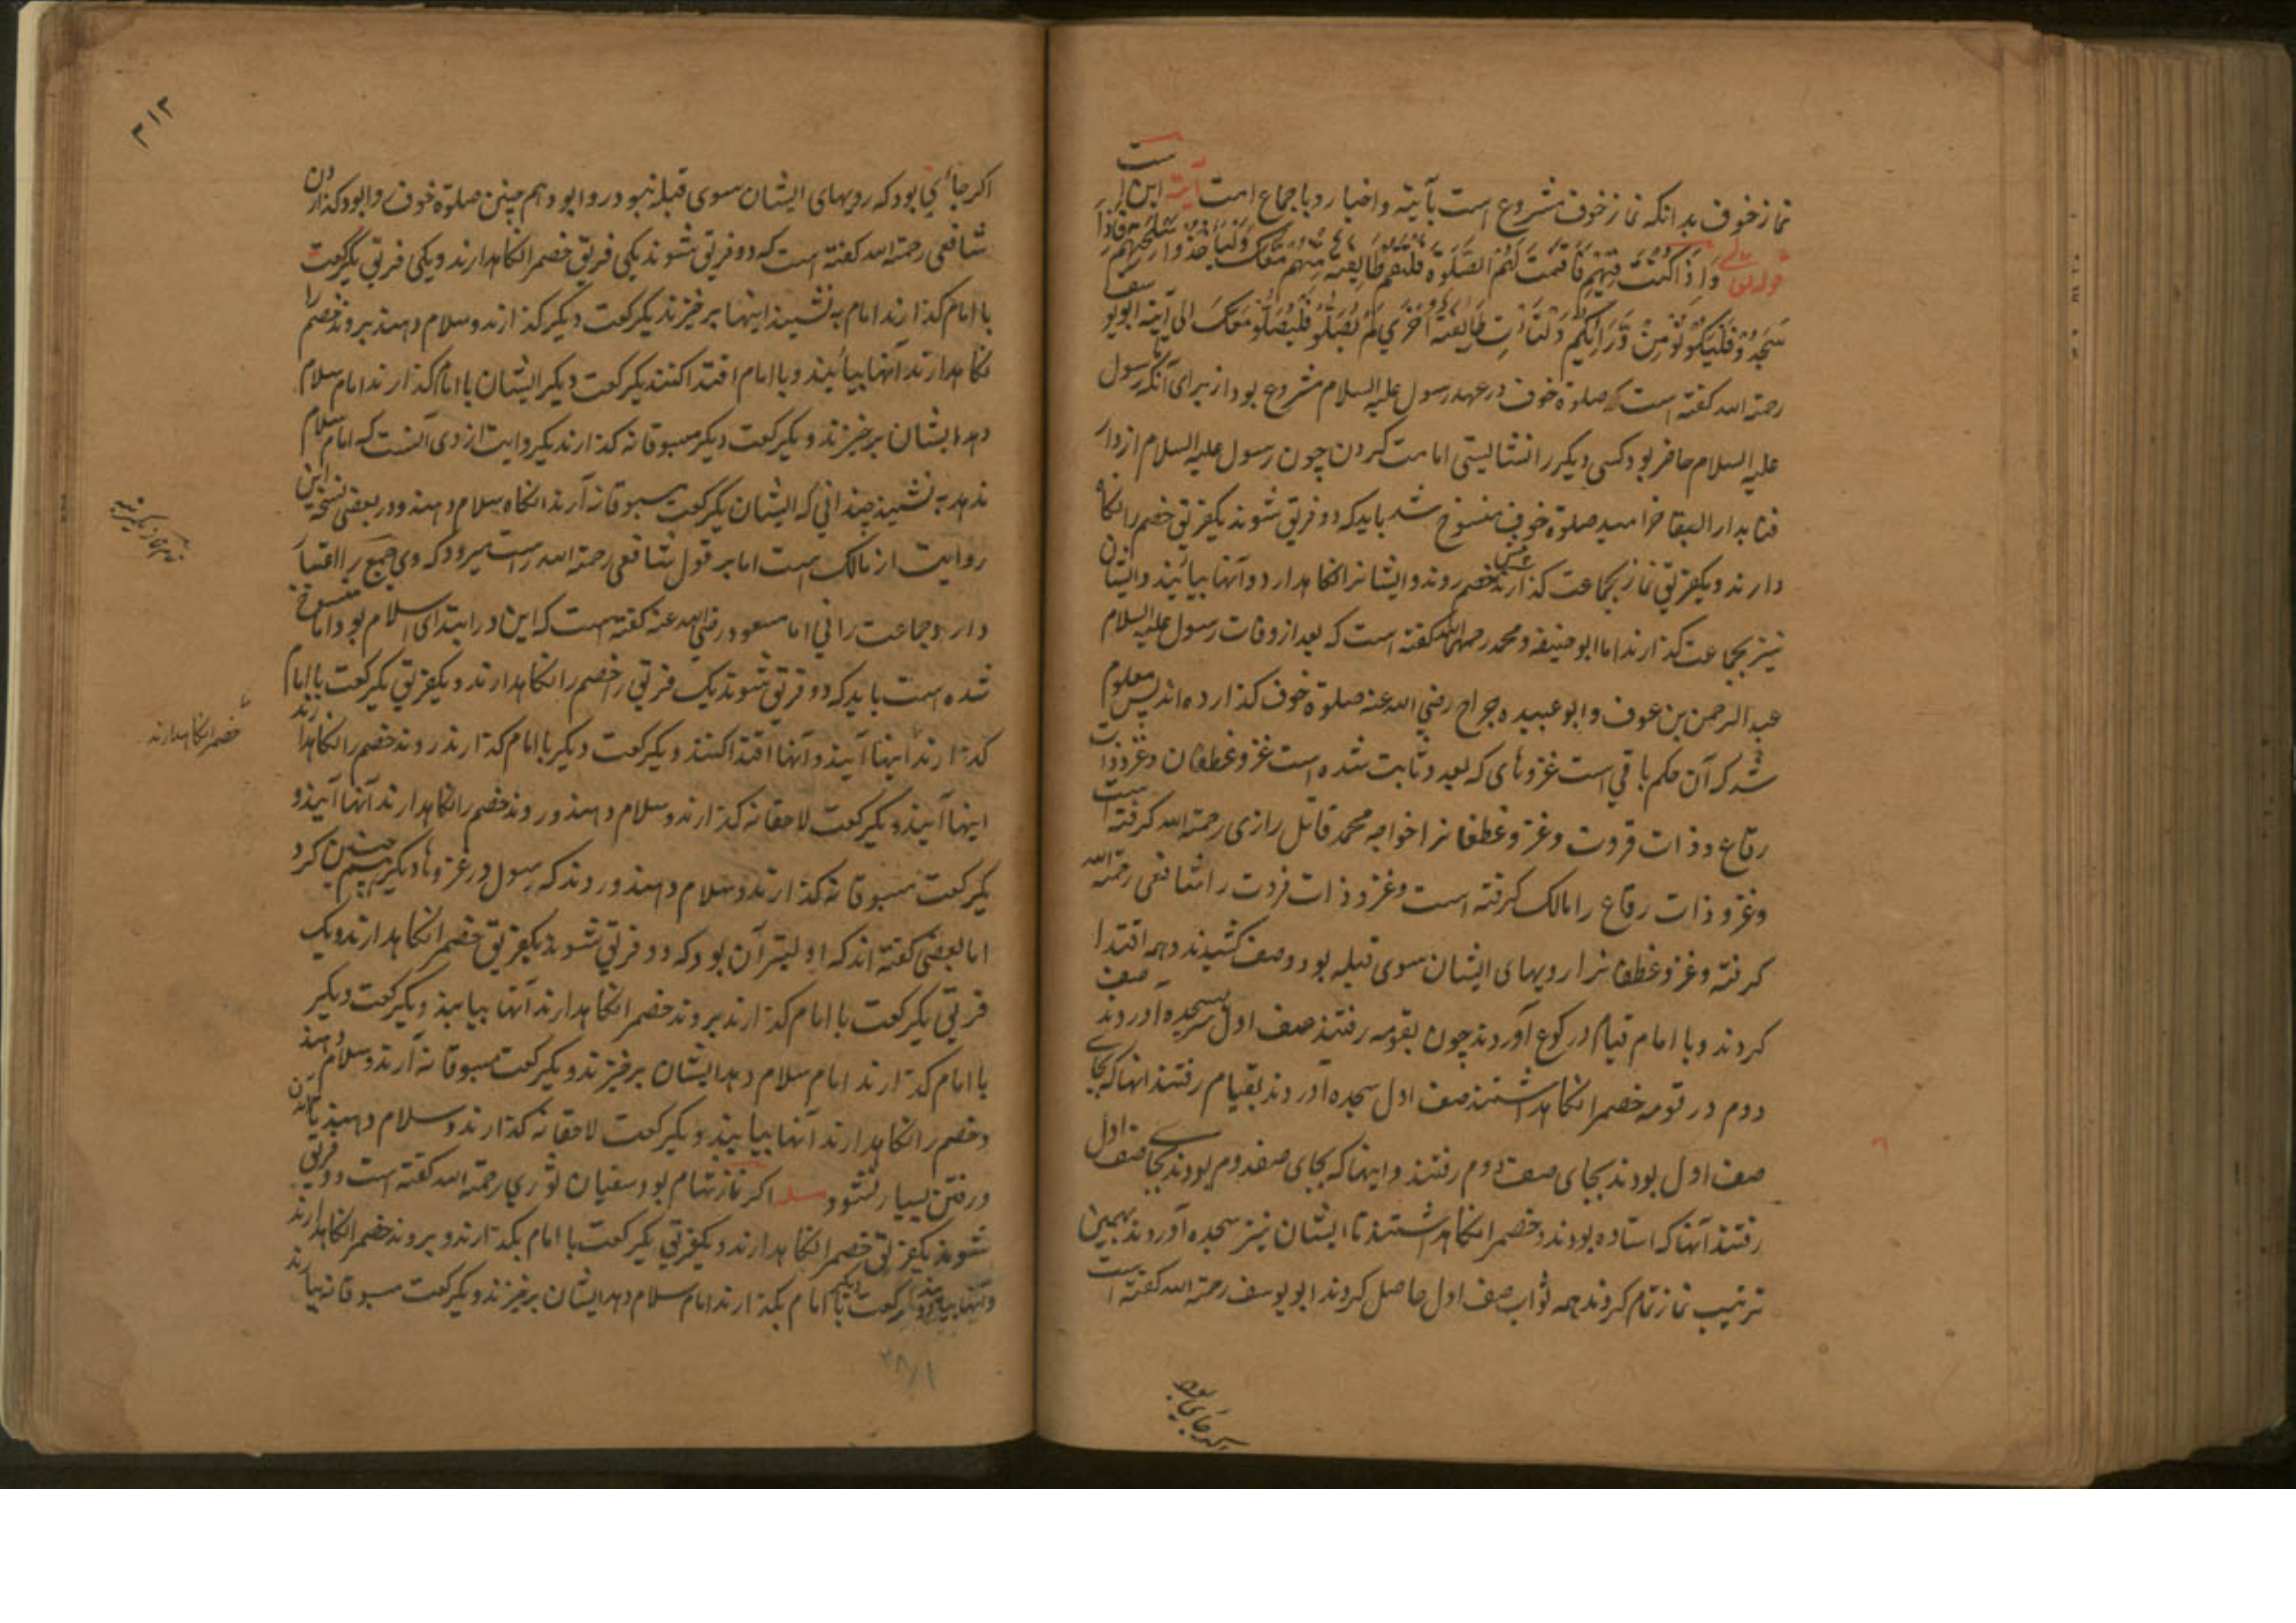 نماز خوف بدانکه نماز خوف مشروع است بآیته و اخبار و باجماع امت آیته این است
قوله تعالی وَاِذَا کُنْتَ فِیْهِمْ فَاَقَمْتَ لَهُمُ الصَّلٰوةَ فَلْتَقُمْ طَایِفَةٌ مِنْهُمْ مَعَکَ وَلْیَاْخُذُوْا اَسْلِحَتَهُمْ فَاِذَا
سَجَدُوْ فَلْیَکُوْنُوْ مِنْ وَّرَایِٕکُمْ وَلْتَاْتِ طَایِفَةٌ اُخْرٰی لَمْ یُصَلُّو فَلْیُصَلُّو مَعَکَ الی آیته ابو یوسف
رحمة الله کفته است که صلوة خوف در عهد رسول علیه السلام مشروع بود از برای آنکه رسول
علیه السلام حاضر بود کسی دیکر را نشایستی امامت کردن چون رسول علیه السلام از دار
فنا بدار البقا خرامید صلوة خوف منسوخ شد باید که دو فریق شوند یکفریق خصم را نکاه
دارند و یکفریق نماز بجماعت کذارند خصم روند و ایشانرا نکاهدارد و آنها بیائیند و ایشان
نیز بجماعت کذارند اما ابو حنیفه و محمد رحمهما الله کفته است که بعد از وفات رسول علیه السلام
عبد الرحمن بن عوف و ابو عبیده جراح رضی الله عنه صلوة خوف کذارده اند پس معلوم
شد که آن حکم باقی است غزوهای که بعد و ثابت شده است غزو غطفان و غزو ذات
رقاع و ذات قروت و غزو غطفانرا خواجه محمد قاتل رازی رحمة الله کرفته است
و غزو ذات رقاع را مالک کرفته است و غزو ذات قردت را شافعی رحمة الله
کرفته و غزو غطفانرا رویهای ایشان سوی قبله بود و صف کشیدند و همه اقتدا
کردند و با امام قیام و رکوع آوردند چون بقومه رفتند صف اول سجده آوردند صف
دوم در قومه خصمرا نکاهداشتند صف اول سجده آوردند بقیام رفتند انها که بجای
صف اول بودند بجای صف دوم رفتند و اینها که بجای صف دوم بودند بجای صف اول
رفتند آنها که استاده بودند و خصمرا نکاهداشتند تا ایشان نیز سجده آوردند بهمین
ترتیب نماز تمام کردند همه ثواب صف اول حاصل کردند ابو یوسف رحمة الله کفته است
اکر جائی
۳۱۲
اکر جائی بود که رویهای ایشان سوی قبله نبود روا بود هم چنین صلوة خوف روا بود کذاردن
شافعی رحمة الله کفته است که دو فریق شوند یکی فریق خصمرا نکاهدارند و یکی فریق یکرکعت
با امام کذارند امام به نشیند اینها برخیزند یکرکعت دیکر کذارند و سلام دهند بروند خصم را
نکاهدارند آنها بیائیند و با امام اقتدا کنند یکرکعت دیکر ایشان با امام کذارند امام سلام
دهد ایشان برخیزند و یکرکعت دیکر مسبوقانه کذارند یکروایت از وی آنست که امام سلام
ندهد به نشیند چندانی که ایشان یکرکعت مسبوقانه آرند انکاه سلام دهند و در بعضی نسخه این
روایت از مالک است اما بر قول شافعی رحمة الله راست میرود که وی جمع را اعتبار
دارد و جماعت را نی اما مسعود رضی الله عنه کفته است که این در ابتدای اسلام بود اما منسوخ
شده است باید که دو فریق شوند یک فریق خصم را نکاهدارند و یکفریق یکرکعت با امام
کذارند اینها آیند و آنها اقتدا کنند و یکرکعت دیکر با امام کذارند روند خصم را نکاهدارند
اینها آیند و یکرکعت لاحقانه کذارند و سلام دهند و روند خصم را نکاهدارند آنها آیند و
یکرکعت مسبوقانه کذارند و سلام دهند و روند که رسول در غزوهاء دیکر هم چنین کرد
اما بعضی کفته اند که اولیتر آن بود که دو فریق شوند یکفریق خصمرا نکاهدارند و یک
فریق یکرکعت با امام کذارند بروند خصمرا نکاهدارند آنها بیایند و یکرکعت دیکر
با امام کذارند امام سلام دهد ایشان برخیزند و یکرکعت مسبوقانه آرند و سلام دهند
و خصم را نکاهدارند آنها بیایند و یکرکعت لاحقانه کذارند و سلام دهند تا آمدن
و رفتن بسیار نشود مسله اکر نماز شام بود سفیان ثوری رحمة الله کفته است دو فریق
شوند یکفریق خصمرا نکاهدارند و یکفریق یکرکعت با امام بکذارند و بروند خصمرا نکاهدارند
و آنها بیایند و دو رکعت با امام بکذارند امام سلام دهد ایشان برخیزند و یکرکعت مسبوقانه بیارند
خصمرا نکاهدارند
۳۸/۱